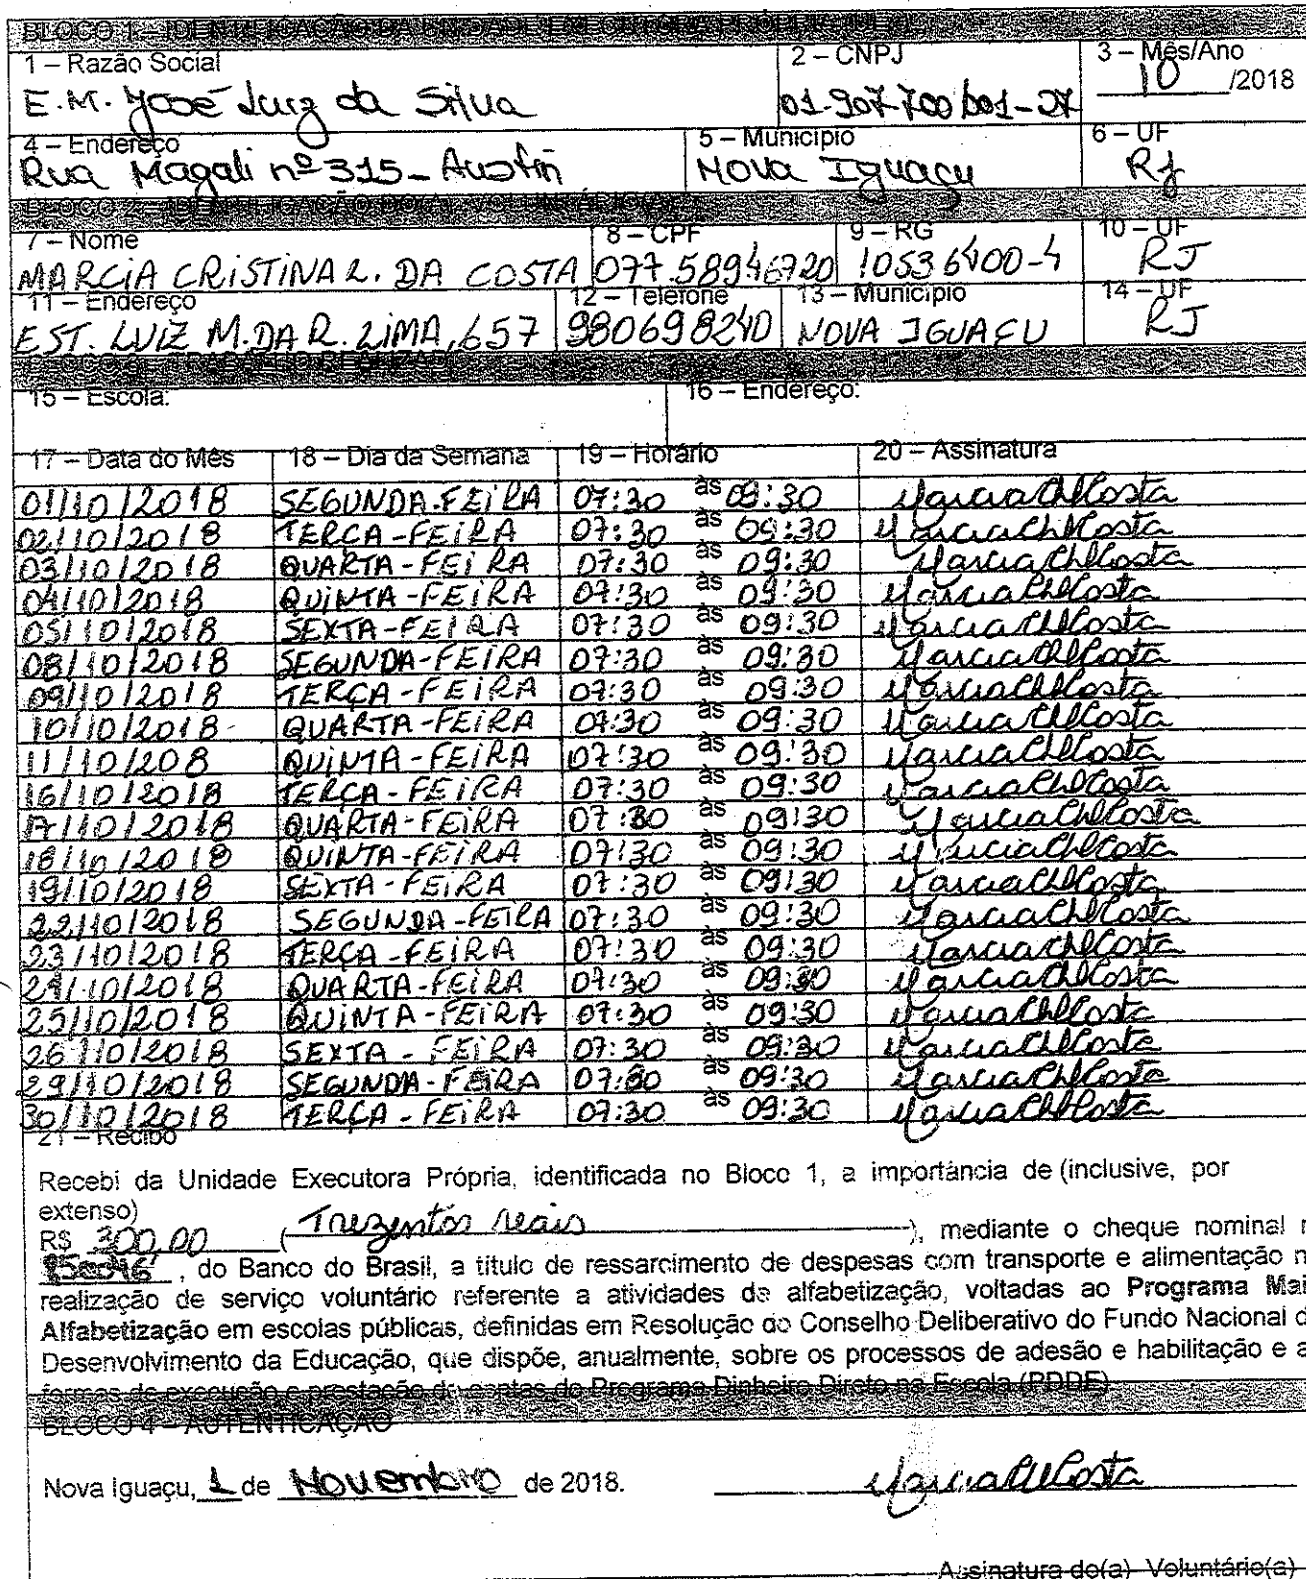 BLOCO 1 – IDENTIFICAÇÃO DA UNIDADE EXECUTORA PRÓPRIA
1 – Razão Social 2 – CNPJ 3 – Mês/Ano
E.M. José Luiz da Silva 01-907-700/001-27 10 /2018
4 – Endereço 5 – Município 6 – UF
Rua Magali nº 315 - Austin Nova Iguaçu RJ
BLOCO 2 – IDENTIFICAÇÃO
7 – Nome 8 – CPF 9 – RG 10 – UF
MARCIA CRISTINA L. DA COSTA 077.58946720 10536400-4 RJ
11 – Endereço 12 – Telefone 13 – Município 14 – UF
EST. LUIZ M. DA R. LIMA, 657 980698240 NOVA IGUAÇU RJ
BLOCO 3 – TRABALHO REALIZADO
15 – Escola: 16 – Endereço:
17 – Data do Mês 18 – Dia da Semana 19 – Horário 20 – Assinatura
01/10/2018 SEGUNDA-FEIRA 07:30 às 09:30 Marcia CLCosta
02/10/2018 TERÇA-FEIRA 07:30 às 09:30 Marcia CLCosta
03/10/2018 QUARTA-FEIRA 07:30 às 09:30 Marcia CLCosta
04/10/2018 QUINTA-FEIRA 07:30 às 09:30 Marcia CLCosta
05/10/2018 SEXTA-FEIRA 07:30 às 09:30 Marcia CLCosta
08/10/2018 SEGUNDA-FEIRA 07:30 às 09:30 Marcia CLCosta
09/10/2018 TERÇA-FEIRA 07:30 às 09:30 Marcia CLCosta
10/10/2018 QUARTA-FEIRA 07:30 às 09:30 Marcia CLCosta
11/10/208 QUINTA-FEIRA 07:30 às 09:30 Marcia CLCosta
16/10/2018 TERÇA-FEIRA 07:30 às 09:30 Marcia CLCosta
17/10/2018 QUARTA-FEIRA 07:30 às 09:30 Marcia CLCosta
18/10/2018 QUINTA-FEIRA 07:30 às 09:30 Marcia CLCosta
19/10/2018 SEXTA-FEIRA 07:30 às 09:30 Marcia CLCosta
22/10/2018 SEGUNDA-FEIRA 07:30 às 09:30 Marcia CLCosta
23/10/2018 TERÇA-FEIRA 07:30 às 09:30 Marcia CLCosta
24/10/2018 QUARTA-FEIRA 07:30 às 09:30 Marcia CLCosta
25/10/2018 QUINTA-FEIRA 07:30 às 09:30 Marcia CLCosta
26/10/2018 SEXTA-FEIRA 07:30 às 09:30 Marcia CLCosta
29/10/2018 SEGUNDA-FEIRA 07:30 às 09:30 Marcia CLCosta
30/10/2018 TERÇA-FEIRA 07:30 às 09:30 Marcia CLCosta
21 – Recibo
Recebi da Unidade Executora Própria, identificada no Bloco 1, a importância de (inclusive, por
extenso)
R$ 300,00 (Trezentos reais), mediante o cheque nominal n
850046, do Banco do Brasil, a título de ressarcimento de despesas com transporte e alimentação n
realização de serviço voluntário referente a atividades de alfabetização, voltadas ao Programa Mai
Alfabetização em escolas públicas, definidas em Resolução do Conselho Deliberativo do Fundo Nacional d
Desenvolvimento da Educação, que dispõe, anualmente, sobre os processos de adesão e habilitação e a
formas de execução e prestação de contas do Programa Dinheiro Direto na Escola (PDDE)
BLOCO 4 – AUTENTICAÇÃO
Nova Iguaçu, 1 de Novembro de 2018. Marcia CLCosta
Assinatura do(a) Voluntário(a)